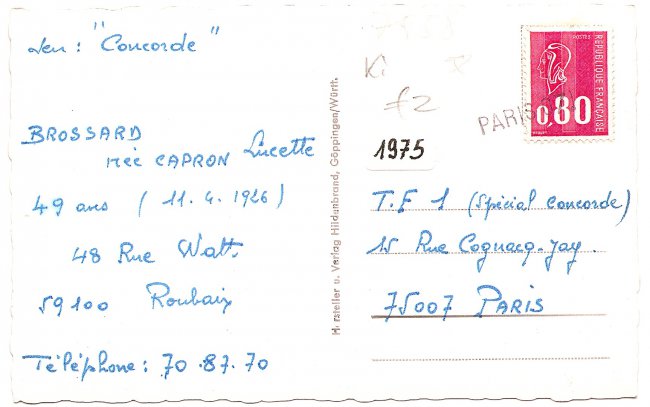 Jeu : "Concorde"
BROSSARD
née CAPRON Lucette
49 ans ( 11. 4. 1926 )
48 Rue Watt
59100 Roubaix
Téléphone : 70.87.70
Hersteller u. Verlag Hildenbrand, Göppingen/Württ.
Ki
£2
1975
POSTES
REPUBLIQUE FRANÇAISE
0,80
PARIS
T.F 1 (Spécial Concorde)
15 Rue Cognacq-Jay.
75007 PARIS